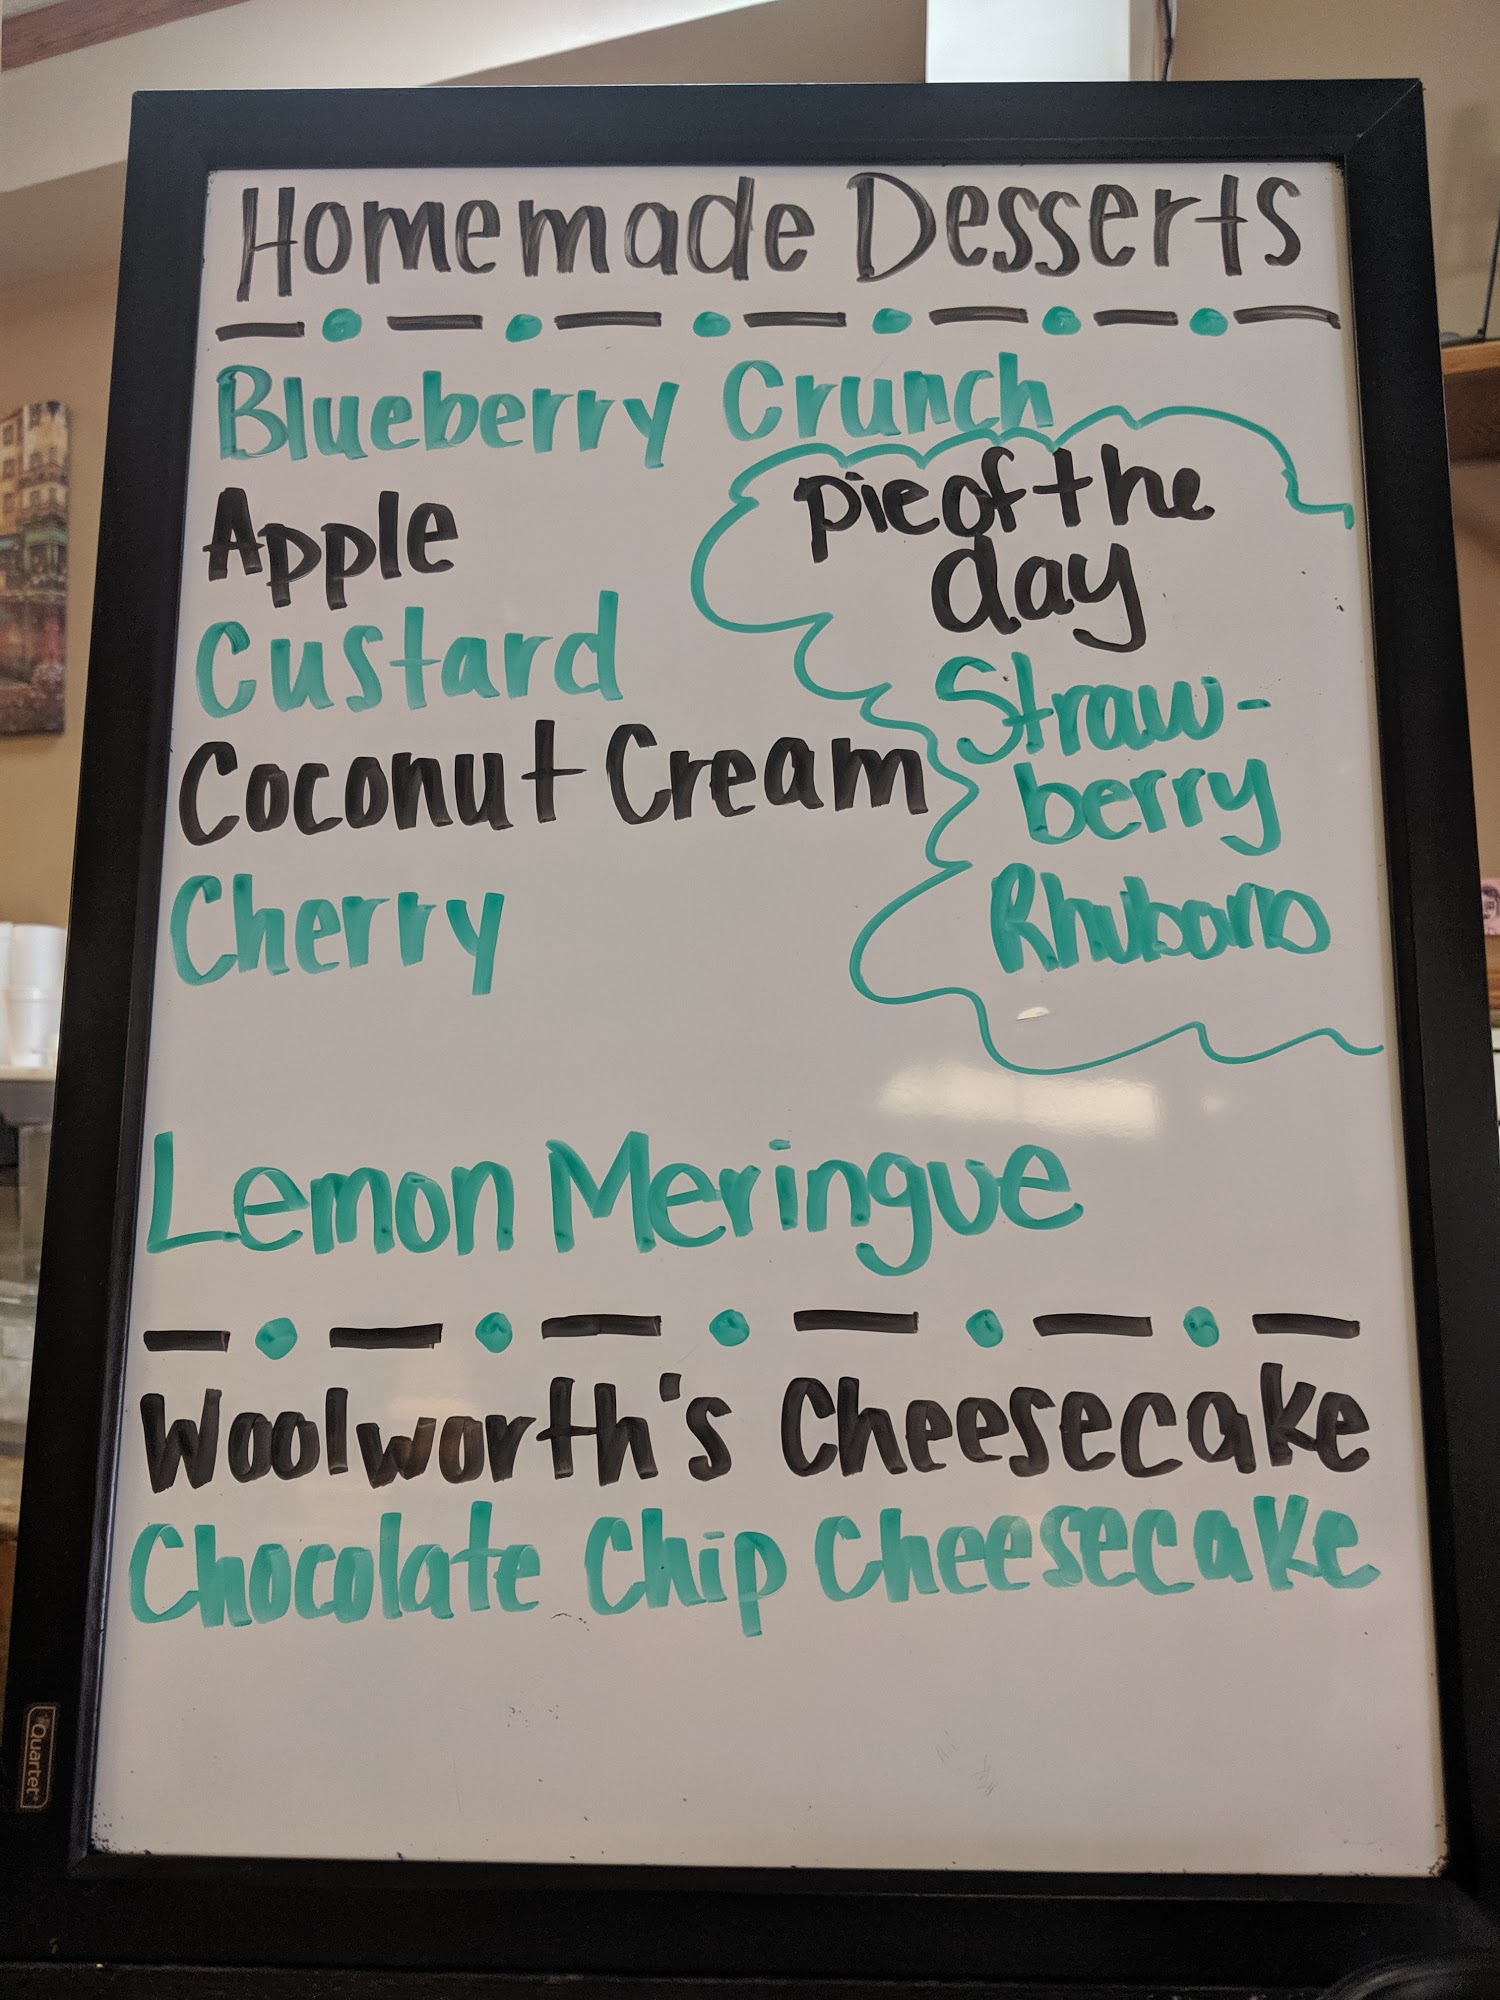 Homemade Desserts
Blueberry Crunch
Apple
Custard
Coconut Cream
Cherry
Lemon Meringue
pie of the
day
Straw-
berry
Rhubarb
Woolworth's Cheesecake
Chocolate Chip Cheesecake
Quartet